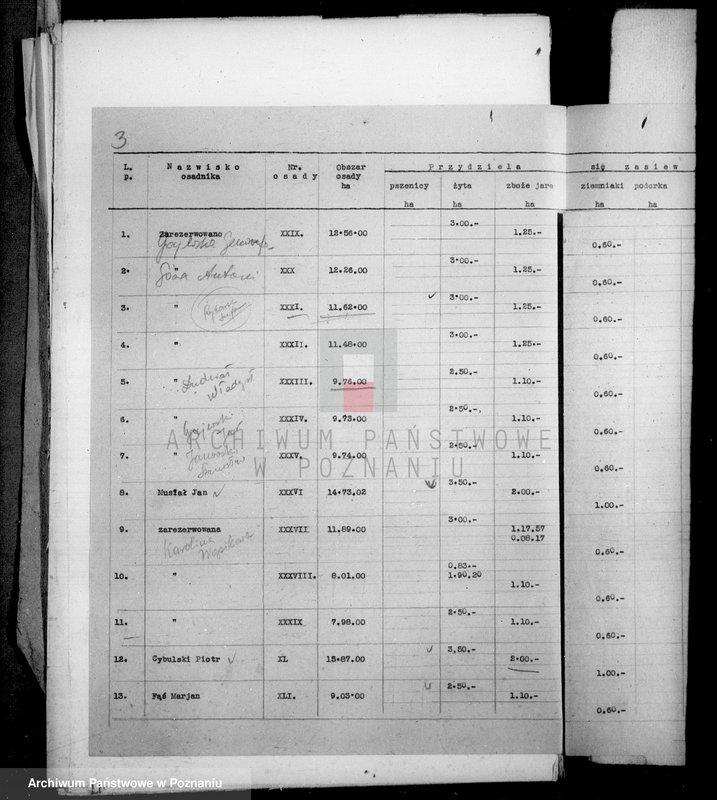 3
L. p. Nazwisko osadnika Nr. osady Obszar osady ha Przydziela się zasiew
pszenicy ha żyta ha zboże jare ha ziemniaki ha podorka ha
1. Zarezerwowano XXIX. 12.56.00 3.00.- 1.25.- 0.60.-
2. " XXX 12.26.00 3.00.- 1.25.- 0.60.-
Góra Antoni
3. " XXXI. 11.62.00 3.00.- 1.25.- 0.60.-
4. " XXXII. 11.48.00 3.00.- 1.25.- 0.60.-
5. " XXXIII. 9.76.00 2.50.- 1.10.- 0.60.-
6. " XXXIV. 9.73.00 2.50.-, 1.10.- 0.60.-
7. " XXXV. 9.74.00 2.50.- 1.10.- 0.60.-
8. Musiał Jan XXXVI 14.73.02 3.50.- 2.00.- 1.00.-
9. zarezerwowana XXXVII 11.89.00 3.00.- 1.17.57 0.60.-
0.08.17
Karolina
10. " XXXVIII. 8.01.00 0.83.- 1.10.- 0.60.-
1.90.20
11. " XXXIX 7.98.00 2.50.- 1.10.- 0.60.-
12. Cybulski Piotr XL 15.87.00 3,50.- 2.00.- 1.00.-
13. Fąś Marjan XLI. 9.03.00 2.50.- 1.10.- 0.60.-
ARCHIWUM PAŃSTWOWE
W POZNANIU
Archiwum Państwowe w Poznaniu